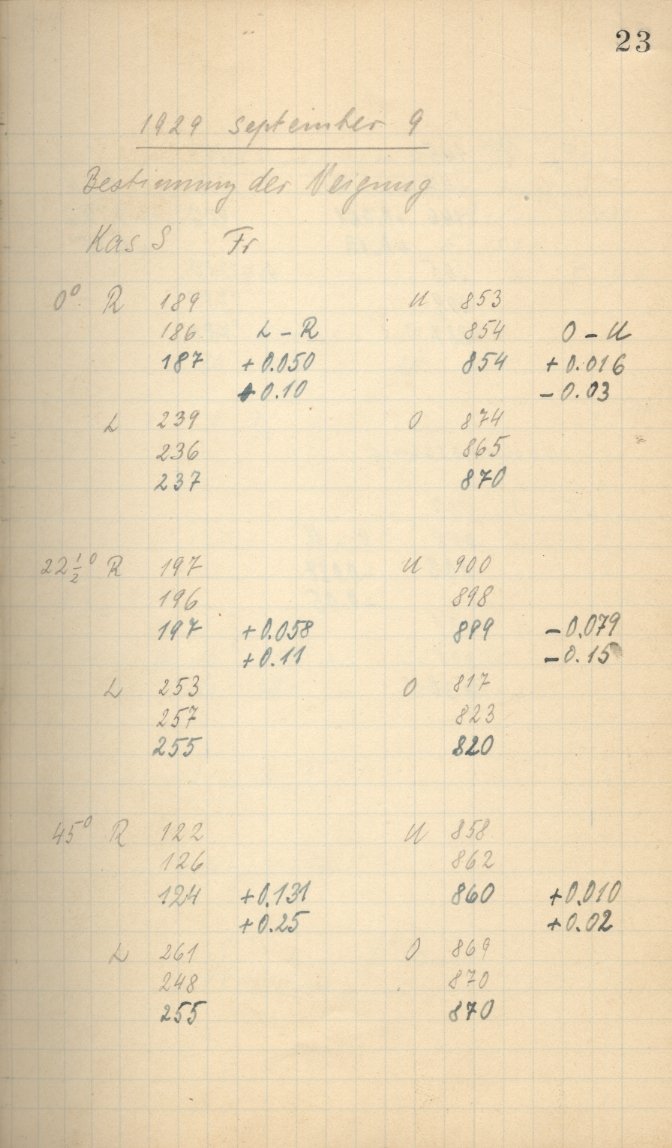 23
1929 September 9
Bestimmung der Neigung
Kas S Fr
0° R 189 U 853
186 L - R 854 O - U
187 +0.050 854 +0.016
+0.10 -0.03
L 239 O 874
236 865
237 870
22 1/2° R 197 U 900
196 898
197 +0.058 899 -0.079
+0.11 -0.15
L 253 O 817
257 823
255 820
45° R 122 U 858
126 862
124 +0.131 860 +0.010
+0.25 +0.02
L 261 O 869
248 870
255 870